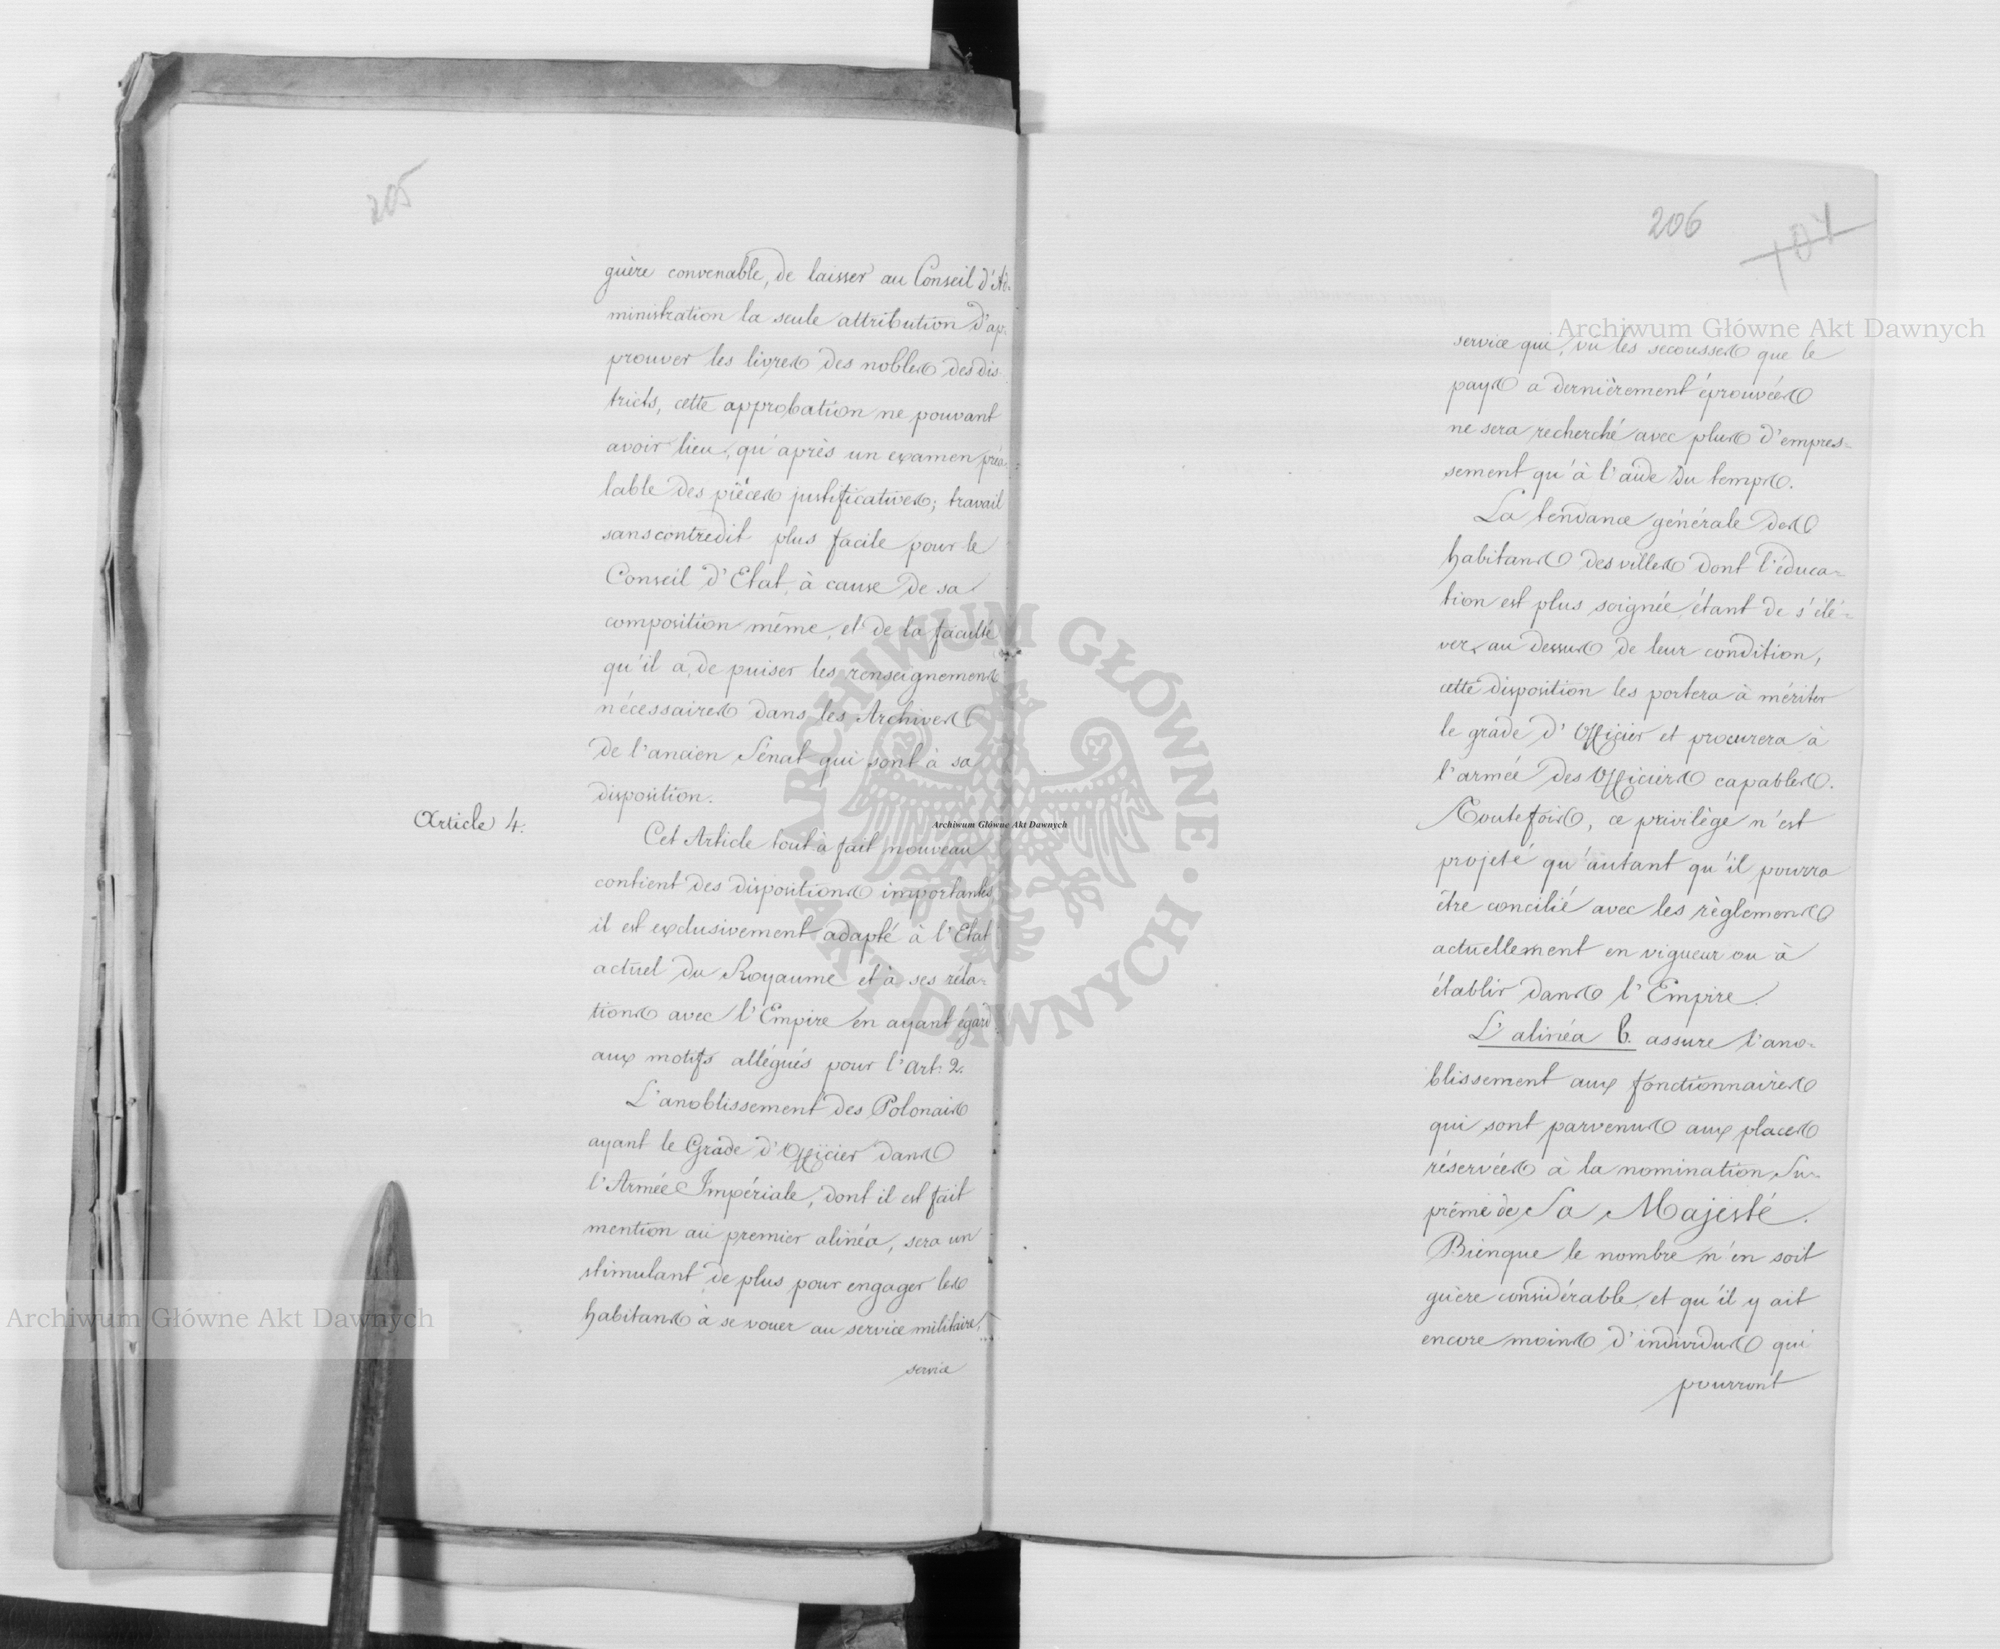 205
guère convenable, de laisser au Conseil d'Ad-
ministration la seule attribution d'ap-
prouver les livres des nobles des dis-
tricts, cette approbation ne pouvant
avoir lieu, qu'après un examen préa-
lable des pièces justificatives; travail
sans contredit plus facile pour le
Conseil d'Etat, à cause de sa
composition même, et de la faculté
qu'il a, de puiser les renseignemens
nécessaires dans les Archives
de l'ancien Sénat qui sont à sa
disposition.
Article 4.
Cet Article tout à fait nouveau
contient des dispositions importantes
il est exclusivement adapté à l'Etat
actuel du Royaume et à ses réla-
tions avec l'Empire en ayant égard
aux motifs allégués pour l'art: 2.
L'anoblissement des Polonais
ayant le Grade d'Officier dans
l'Armée Impériale, dont il est fait
mention au premier alinéa, sera un
stimulant de plus pour engager les
habitans à se vouer au service militaire,
service
206
107
service qui, vu les secousses que le
pays a dernièrement éprouvées
ne sera recherché avec plus d'empres-
sement qu'à l'aide du temps.
La tendance générale des
habitans des villes dont l'éduca-
tion est plus soignée, étant de s'élé-
ver au dessus de leur condition,
cette disposition les portera à mériter
le grade d'Officier et procurera à
l'armée des Officiers capables.
Toutefois, ce privilège n'est
projeté qu'autant qu'il pourra
être concilié avec les règlemens
actuellement en vigueur ou à
établir dans l'Empire.
L'alinéa b. assure l'ano-
blissement aux fonctionnaires
qui sont parvenus aux places
réservées à la nomination Su-
prême de Sa Majesté.
Bienque le nombre n'en soit
guère considérable, et qu'il y ait
encore moins d'individus qui
pourront
Archiwum Główne Akt Dawnych
Archiwum Główne Akt Dawnych
Archiwum Główne Akt Dawnych
ARCHIWUM GŁÓWNE · AKT DAWNYCH ·